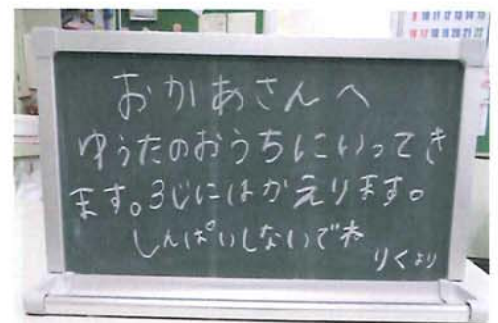 おかあさんへ
ゆうたのおうちにいってき
ます。3じにはかえります。
しんぱいしないでネ
りくより